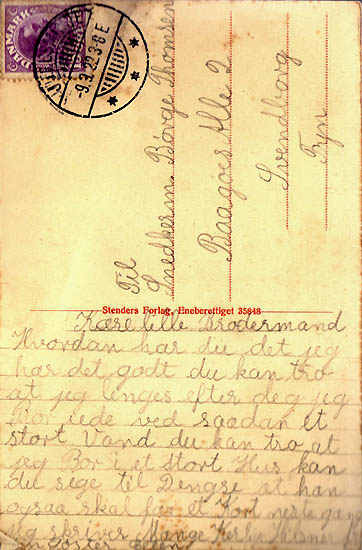 DANMARK
9.3.22.3-8 E
Til
Snedkerm. Børge Thomsen
Baagøes Alle 2
Svendborg
Fyn
Stenders Forlag, Eneberettiget 35848
Kære lille Brodermand
Hvordan har du det jeg
har det godt du kan tro
at jeg lenges efter deg jeg
Bor nede ved saadan et
stort Vand du kan tro at
jeg Bor i et stort Hus kan
du sege til Dengse at han
ogsaa skal får et Kort neste gang
jeg skriver Mange Kerlige Hilsner